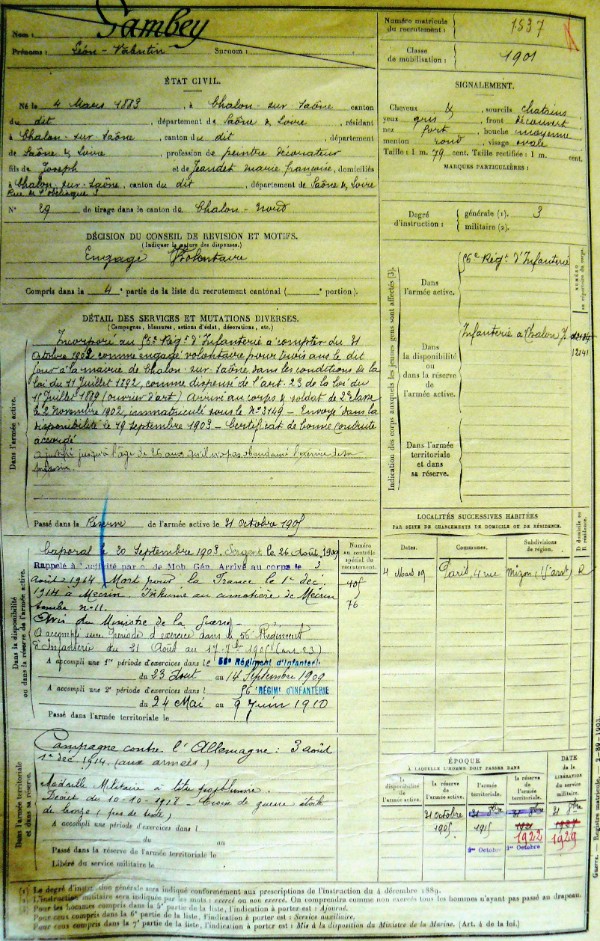 Nom : Lambey
Prénoms : Léon-Valentin Surnom :
Numéro matricule
du recrutement : 1537
Classe
de mobilisation : 1901
ÉTAT CIVIL.
Né le 4 Mars 1883, à Chalon-sur-Saône canton
du dit, département de Saône & Loire, résidant
à Chalon-sur-Saône, canton du dit, département
de Saône & Loire, profession de peintre décorateur
fils de Joseph et de Jeandet Marie Françoise, domiciliés
à Chalon-sur-Saône, canton du dit, département de Saône & Loire
N° 29 de tirage dans le canton de Chalon-Nord
SIGNALEMENT.
Cheveux &, sourcils chatains
yeux gris, front découvert
nez fort, bouche moyenne
menton rond, visage ovale
Taille : 1 m. 79 cent. Taille rectifiée : 1 m. cent.
MARQUES PARTICULIÈRES :
Degré
d'instruction :
générale (1). 3
militaire (2).
DÉCISION DU CONSEIL DE REVISION ET MOTIFS.
(Indiquer la nature des dispenses.)
Engagé Volontaire
Compris dans la 4e partie de la liste du recrutement cantonal ( portion).
DÉTAIL DES SERVICES ET MUTATIONS DIVERSES.
(Campagnes, blessures, actions d'éclat, décorations, etc.)
Dans l'armée active.
Incorporé au 56e Régt d'Infanterie à compter du 31
Octobre 1902 comme engagé volontaire pour trois ans le dit
jour à la mairie de Chalon-sur-Saône dans les conditions de la
loi du 11 Juillet 1892, comme dispensé de l'art. 23 de la loi du
15 Juillet 1889 (ouvrier d'art) Arrivé au corps & soldat de 2e classe
le 2 Novembre 1902, immatriculé sous le N° 3149 - Envoyé dans la
disponibilité le 19 Septembre 1903 - Certificat de bonne conduite
accordé
A justifié jusqu'à l'âge de 26 ans qu'il n'a pas abandonné l'exercice de sa
profession.
Passé dans la Réserve de l'armée active le 31 octobre 1905
Indication des corps auxquels les jeunes gens sont affectés (3).
Dans
l'armée active.
56e Régt d'Infanterie
NUMÉRO
Dans
la disponibilité
ou dans la réserve
de l'armée active.
Infanterie à Chalon
12141
Dans l'armée
territoriale
et dans
sa réserve.
LOCALITÉS SUCCESSIVES HABITÉES
PAR SUITE DE CHANGEMENTS DE DOMICILE OU DE RÉSIDENCE.
Dates. Communes. Subdivisions
de région.
D. domicile ou
R. résidence.
4 Mars 09 Paris, 4 rue Mizon (15e arrt) R
Dans la disponibilité
ou dans la réserve de l'armée active.
Caporal le 20 Septembre 1903. Sergent le 26 Août 1909
Numéro
au contrôle
spécial du
recrutement.
Rappelé à l'activité par de Mob. Gén. Arrivé au corps le 3
Août 1914 Mort pour la France le 1er déc.
1914 à Mécrin. Inhumé au cimetière de Mécrin
tombe n° 11.
76
Avis du Ministre de la Guerre
A accompli une période d'exercice dans le 56e Régiment
d'Infanterie du 21 Août au 17 7bre 1905 (art 23)
A accompli une 1re période d'exercices dans le 56e Régiment d'Infanterie
du 23 Août au 14 Septembre 1909
A accompli une 2e période d'exercices dans l 56 RÉGIMt D'INFANTERIE
du 24 Mai au 9 Juin 1910
Passé dans l'armée territoriale le
Dans l'armée territoriale
et dans sa réserve.
Campagne contre l'Allemagne : 3 août
1er déc. 1914. (aux armées)
Médaille Militaire à titre posthume.
Décret du 10-10-1918 - Croix de guerre : étoile
de bronze (pas de texte)
A accompli une période d'exercices dans l
du au
Passé dans la réserve de l'armée territoriale le
Libéré du service militaire le
ÉPOQUE
À LAQUELLE L'HOMME DOIT PASSER DANS
la
disponibilité
de l'armée
active.
la
réserve
de
l'armée
active.
l'armée
territoriale.
la réserve
de
l'armée
territoriale.
DATE
de la
LIBÉRATION
du
service
militaire.
31 octobre
1905
1915
1er Octobre
1922
1er Octobre
1929
(1) Le degré d'instruction générale sera indiqué conformément aux prescriptions de l'instruction du 4 décembre 1889.
(2) L'instruction militaire sera indiquée par les mots : exercé ou non exercé. On comprendra comme non exercés tous les hommes n'ayant pas passé au drapeau.
Pour les hommes compris dans la 5e partie de la liste, l'indication à porter est : Ajourné.
Pour ceux compris dans la 6e partie de la liste, l'indication à porter est : Service auxiliaire.
Pour ceux compris dans la 7e partie de la liste, l'indication à porter est : Mis à la disposition du Ministre de la Marine. (Art. 4 de la loi.)
Guerre. Registre matricule.